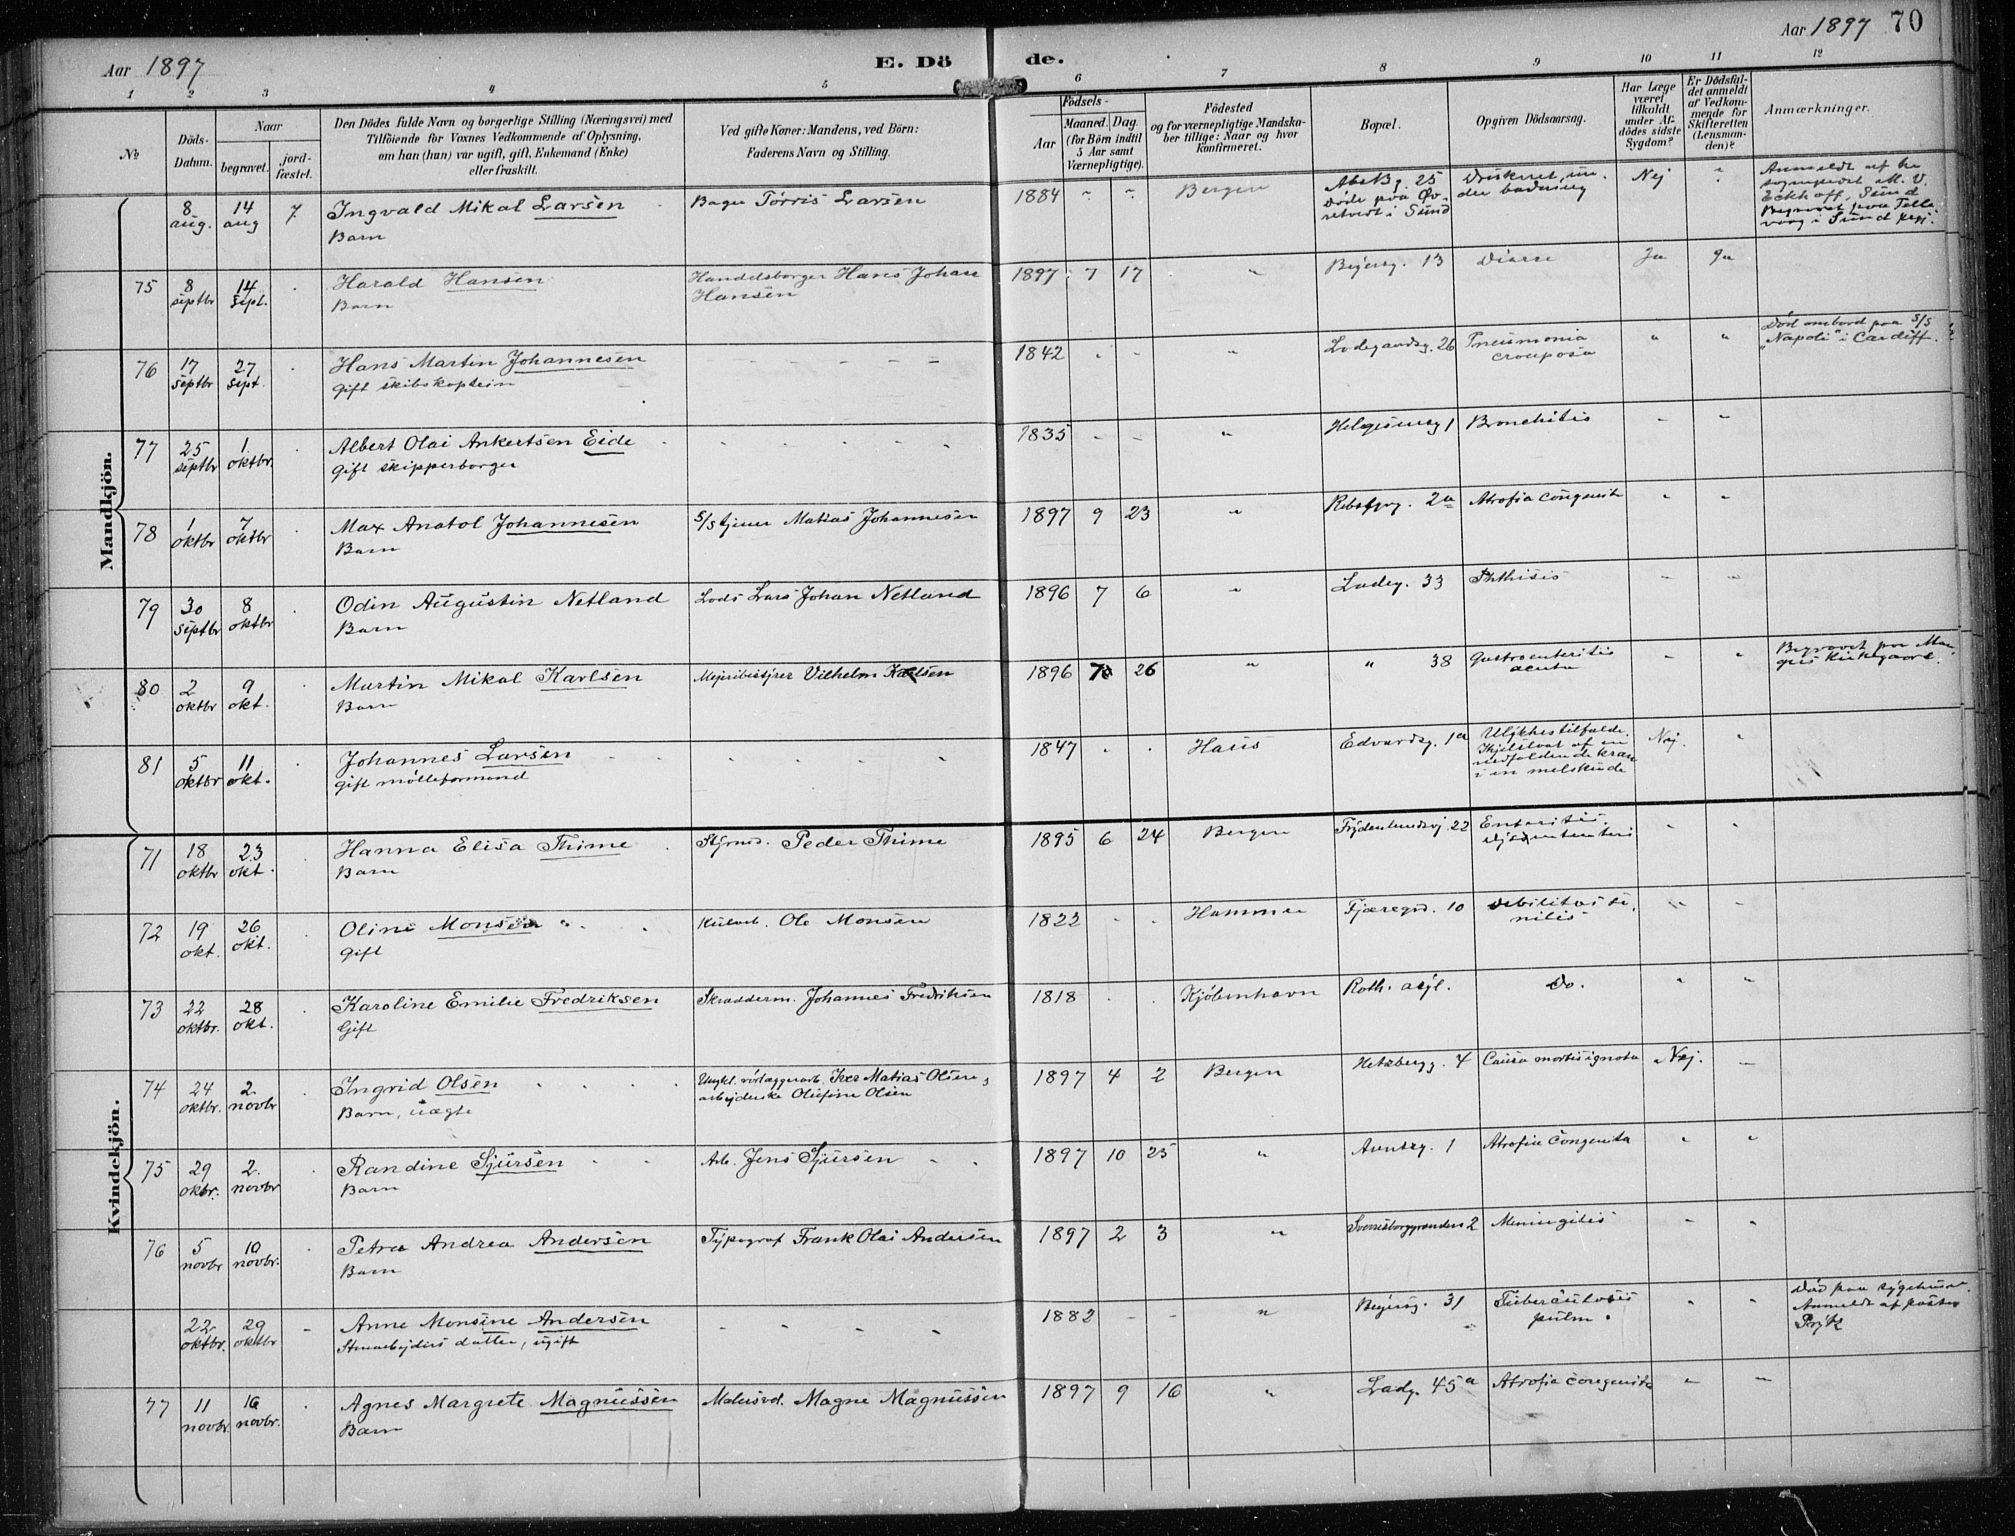 Aar 1897
E. Döde.
Aar 1897 70
1 2 3 4 5 6 7 8 9 10 11 12
No
Döds-Datum.
Naar
begravet.
jordfæstet.
Den Dödes fulde Navn og borgerlige Stilling (Næringsvei) med
Tilföiende for Voxnes Vedkommende af Oplysning,
om han (hun) var ugift, gift, Enkemand (Enke)
eller fraskilt.
Ved gifte Koner: Mandens, ved Börn:
Faderens Navn og Stilling.
Födsels-
Aar
Maaned. Dag.
(for Börn indtil
5 Aar samt
Værnepligtige).
Födested
og for værnepligtige Mandskaber tillige: Naar og hvor
konfirmeret.
Bopæl.
Opgiven Dödsaarsag.
Har Læge
været
tilkaldt
under Afdödes sidste
Sygdom?
Er Dödsfaldet anmeldt
af Vedkommende for
Skifteretten
(Lensmanden)?
Anmærkninger.
Mandkjön.
8 aug. 14 aug 7. Ingvald Mikal Larsen Bager Tørris Larsen 1884 " " Bergen 25 Døde paa i Sund Druknet under badning Nej " Anmeldt af M. V. Eckhoff, Sund Begravet paa i Sund
Barn
75 8 septbr 14 sept. Harald Hansen Handelsborger Hans Johan Hansen 1897 7 17 " 13 Diarre Ja Ja
Barn
76 17 septbr 27 sept. Hans Martin Johannesen - - - - 1842 - - " Ladegaardsg. 26 Pneumonia crouposa " " Død ombord paa S/S "Napoli" i Cardiff.
Gift skibskaptein
77 25 septbr 1. oktbr. Albert Olai Ankertsen Eide - - - - 1835 - - " 1 Bronchitis " "
Gift skipperborger
78 1 oktbr 7 oktbr Max Anatol Johannesen S/S tjener Matias Johannesen 1897 9 23 " 2a Atrofia congenita " "
Barn
79 30 septbr 8 oktbr Odin Augustin Netland Lods Lars Johan Netland 1896 7 6 " Ladeg. 33 Phthisis " "
Barn
80 2 oktbr 9 okt. Martin Mikal Karlsen Mejeribestyrer Vilhelm Karlsen 1896 26 " " 38 Gastroenteritis acuta " " Begravet paa kirkegaard.
Barn
81 5 oktbr 11 okt. Johannes Larsen - - - - 1847 - - Haus Edvardsg. 1a Ulykkestilfælde. Ihjelslaat af en nedfaldende kran i en melskude Nej. "
Gift mølleformand
Kvindekjön.
71 18 oktbr 23 okt. Hanna Elisa Thime Styrmd. Peder Thime 1895 6 24 Bergen Frydenlundsvj. 22 Enteritis " "
Barn
72 19 okt. 26 okt. Oline Monsen Ole Monsen 1822 - - Hammer Fjæregd. 10 Debilitas senilis " "
Gift
73 22 oktbr. 28 okt. Karoline Emilie Fredriksen Skrædderm. Johannes Fredriksen 1818 - - Kjöbenhavn Roth. asyl. Do. " "
Gift
74 24 oktbr. 2. novbr Ingrid Olsen Matias Olsen, arbejderske Olufine Olsen 1897 4 2 Bergen 4 Causa mortis ignota Nej. -
Barn, uægte
75 29 oktbr. 2. novbr Randine Sjursen Arb. Jens Sjursen 1897 10 25 " 1 Atrofia congenita " "
Barn
76 5 novbr 10 novbr. Petra Andrea Andersen Typograf Frank Olai Andersen 1897 2 3 " Sverresborggrænden 2 Meningitis " "
Barn
22 oktbr. 29 oktbr - Anne Monsine Andersen - - - - 1882 - - " 31 Tuberculosis pulm. " " Død paa sygehuset. Anmeldt af pastor
datter, ugift
77 11 novbr. 16 novbr. Agnes Margrete Magnussen Malersvd. Magne Magnussen 1897 9 16 " Ladg. 45a Atrofia congenita " "
Barn